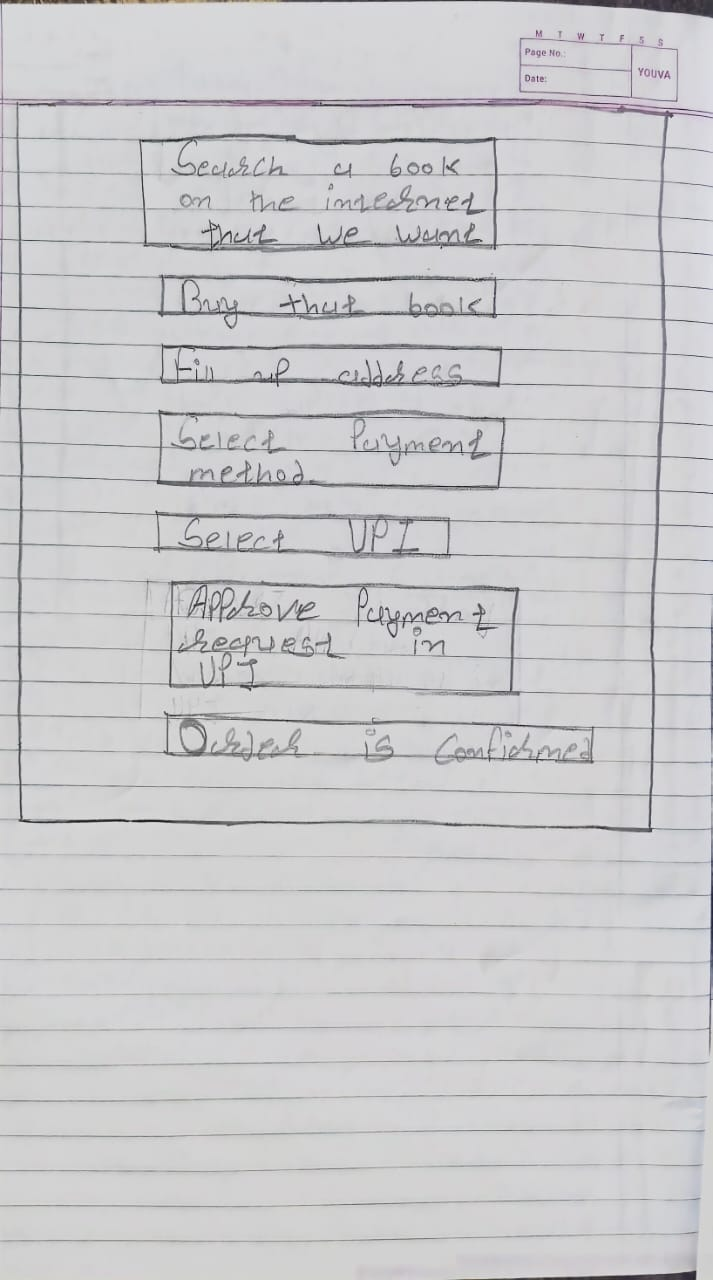 M T W T F S S
Page No.:
Date:
YOUVA
Search a book
on the internet
that we want
Buy that book
Fill up address
Select Payment
method
Select UPI
Approve Payment
request in
UPI
Order is Confirmed